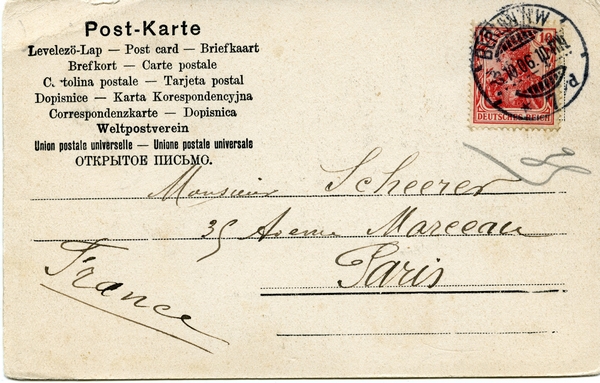 Post-Karte
Levelező-Lap — Post card — Briefkaart
Brefkort — Carte postale
Cartolina postale — Tarjeta postal
Dopisnice — Karta Korespondencyjna
Correspondenzkarte — Dopisnica
Weltpostverein
Union postale universelle — Unione postale universale
ОТКРЫТОЕ ПИСЬМО.
10
BERLIN N.W.
DEUTSCHES REICH
Monsieur Scheerer
35 Avenue Marceau
Paris
France